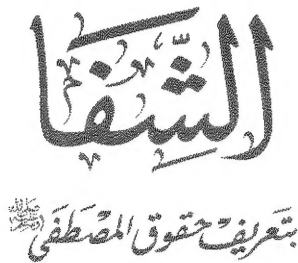 الشِّفَا
بتعريف حقوق المصطفى ﷺ